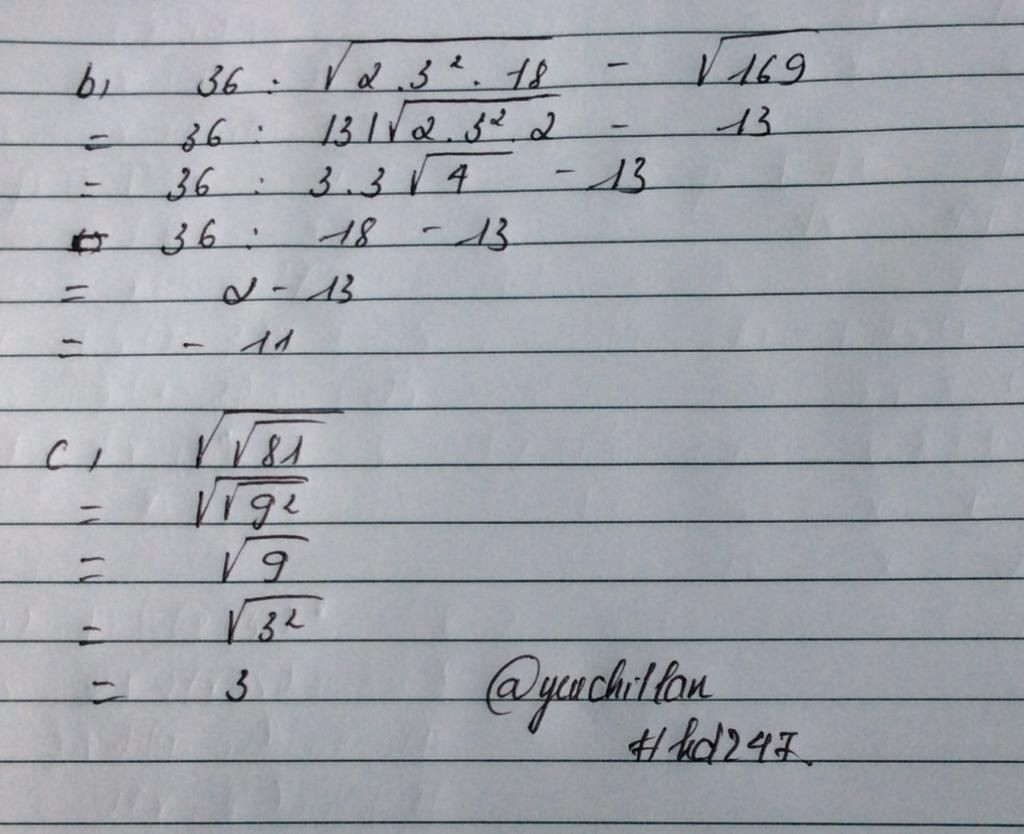 b, 36 : √2.3².18 - √169
= 36 : |3|√2.3².2 - 13
= 36 : 3.3√4 - 13
= 36 : 18 - 13
= 2 - 13
= - 11
c, √√81
= √√9²
= √9
= √3²
= 3 @yuuchillan
#hd247.